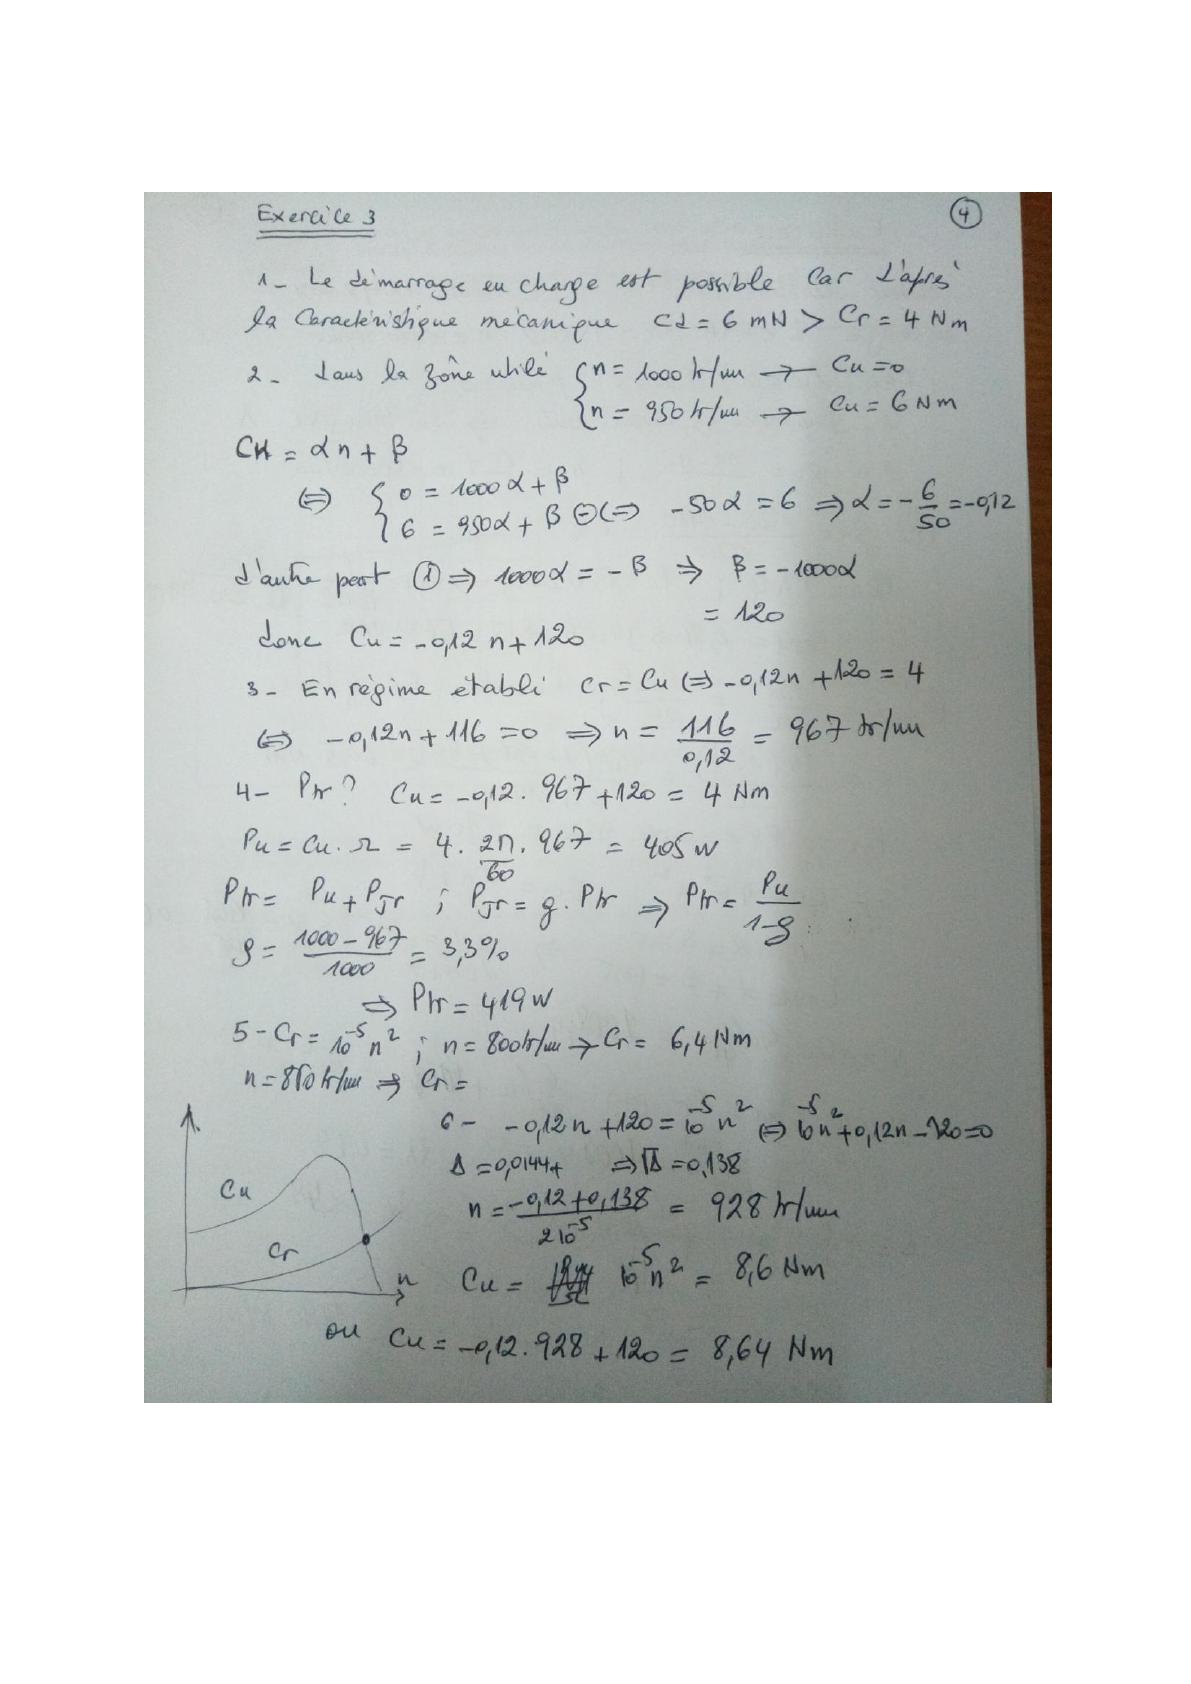 Exercice 3
4
1- Le démarrage en charge est possible car d'après
la caractéristique mécanique Cd = 6 mN > Cr = 4 Nm
2- dans la zône utile { n = 1000 tr/mn → Cu = 0
n = 950 tr/mn → Cu = 6 Nm
Cu = αn + β
⇔ { 0 = 1000α + β
6 = 950α + β ⊖ ⇔ -50α = 6 ⇒ α = -6/50 = -0,12
d'autre part ① ⇒ 1000α = -β ⇒ β = -1000α
= 120
donc Cu = -0,12 n + 120
3- En régime établi Cr = Cu ⇔ -0,12n + 120 = 4
⇔ -0,12n + 116 = 0 ⇒ n = 116/0,12 = 967 tr/mn
4- Ptr? Cu = -0,12 . 967 + 120 = 4 Nm
Pu = Cu . Ω = 4 . 2π/60 . 967 = 405 W
Ptr = Pu + PJr ; PJr = g . Ptr ⇒ Ptr = Pu/1-g
g = 1000 - 967/1000 = 3,3%
⇒ Ptr = 419 W
5- Cr = 10⁻⁵ n² ; n = 800 tr/mn → Cr = 6,4 Nm
⇒ Cr =
6- -0,12n + 120 = 10⁻⁵ n² ⇔ 10⁻⁵n² + 0,12n - 120 = 0
Δ = 0,0144 + ⇒ √Δ = 0,138
n = -0,12 + 0,138/2 10⁻⁵ = 928 tr/mn
Cu
Cr
n
Cu = 10⁻⁵ n² = 8,6 Nm
ou Cu = -0,12 . 928 + 120 = 8,64 Nm